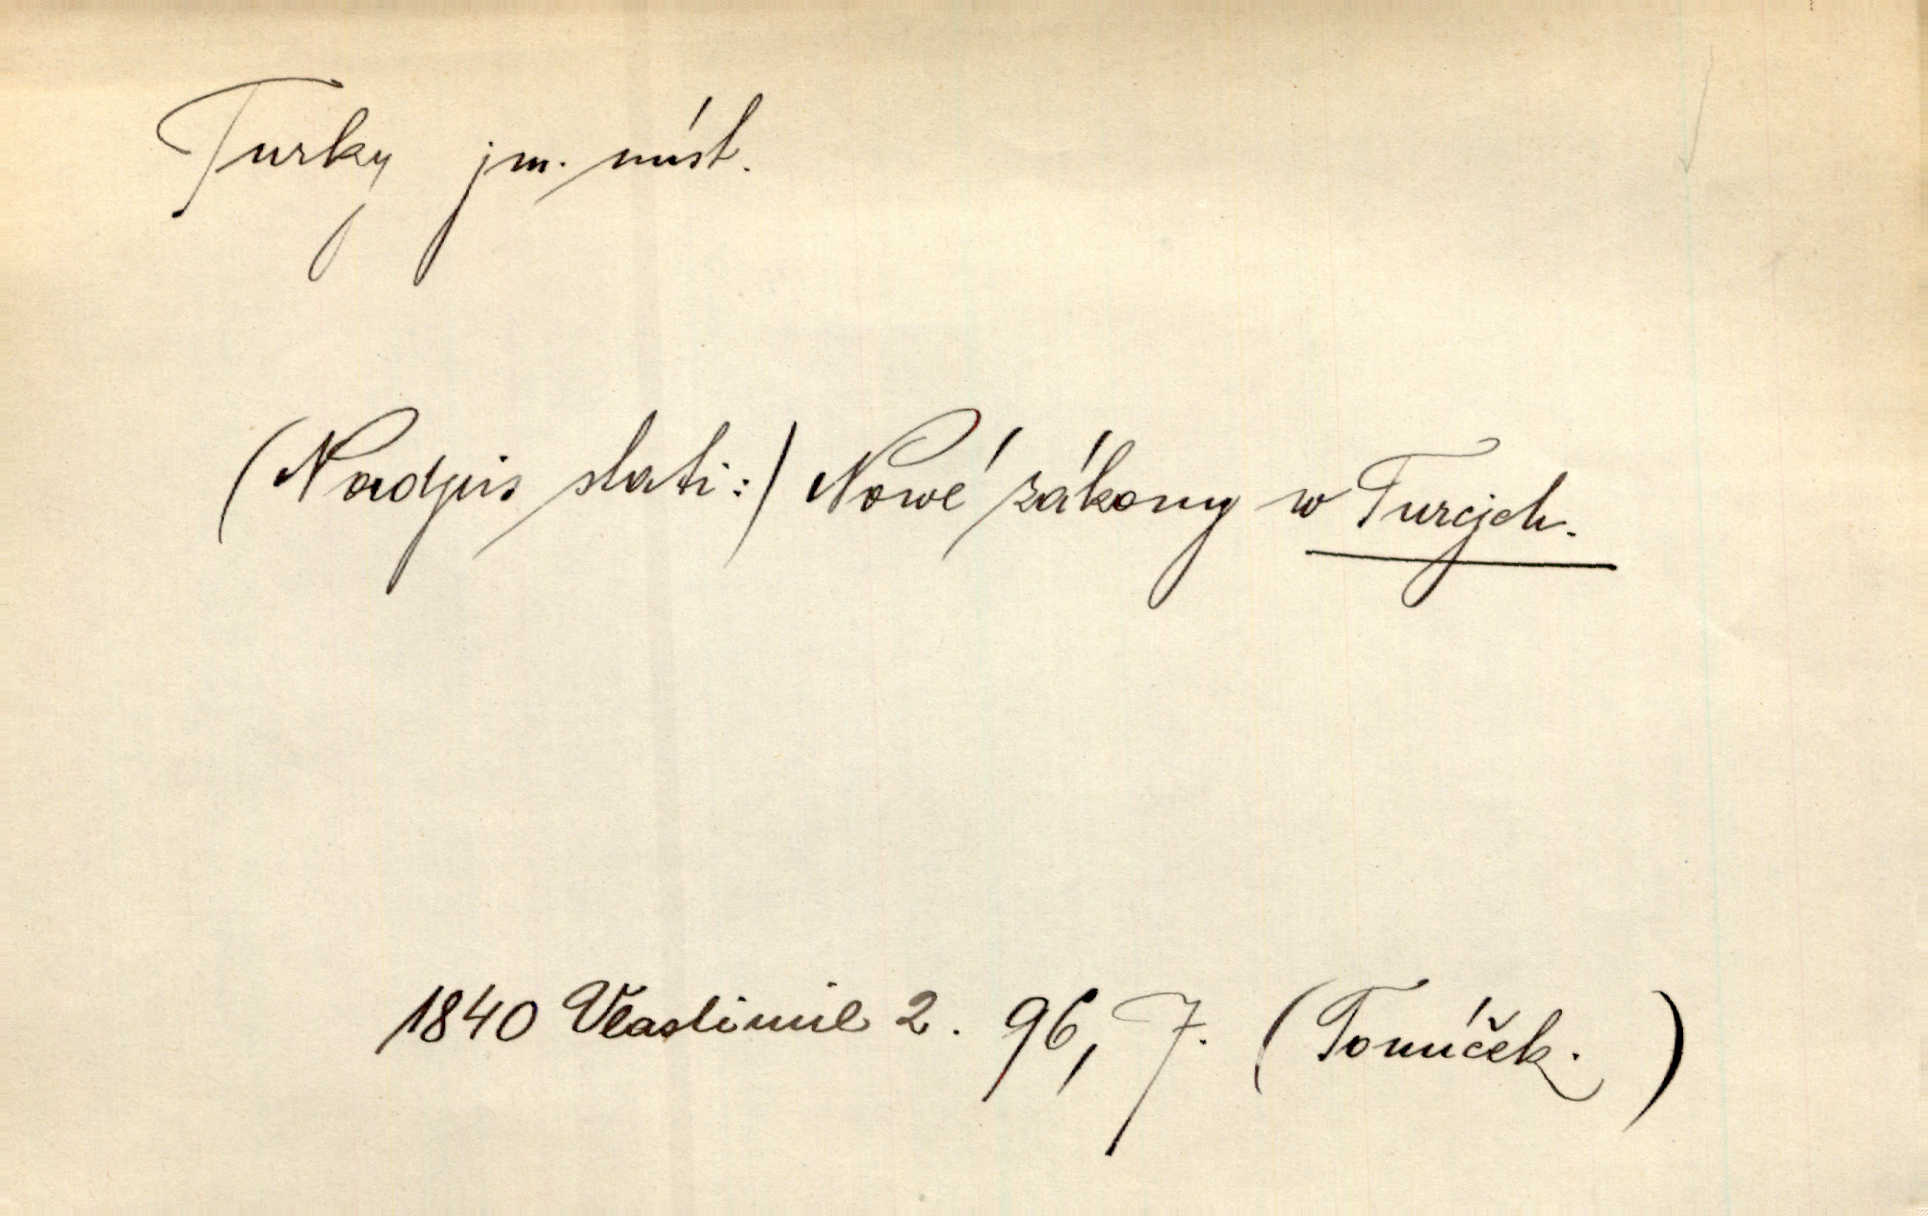 Turky jm. míst.
(Nadpis stati:) Nowé zákony w Turcjch.
1840 Vlastimil 2. 96, 7. (Tomíček.)